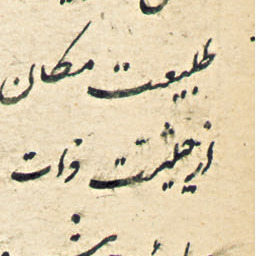 طبیعت مکان
از حیثیت ذات